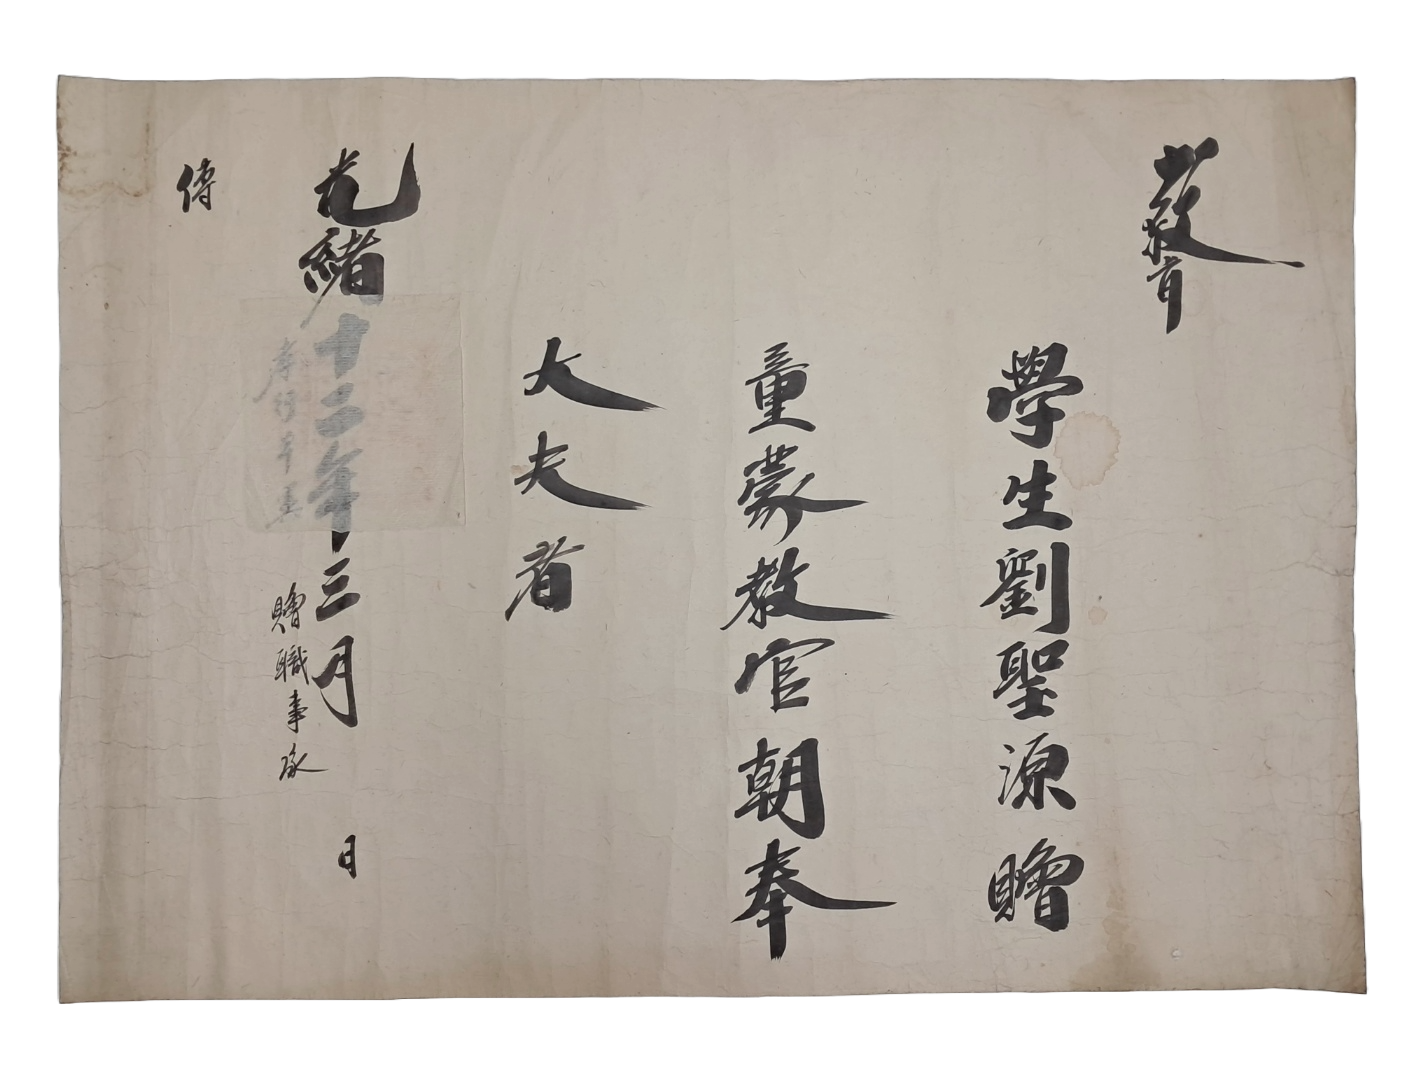 敎旨
學生劉聖源贈
童蒙教官朝奉
大夫者
光緒十二年三月 日
孝行卓異 贈職事承
傳